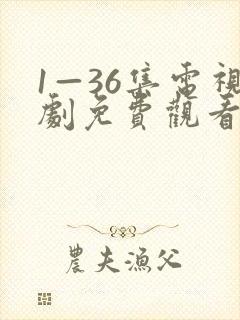 1—36集電視
劇免費觀看
農夫漁父